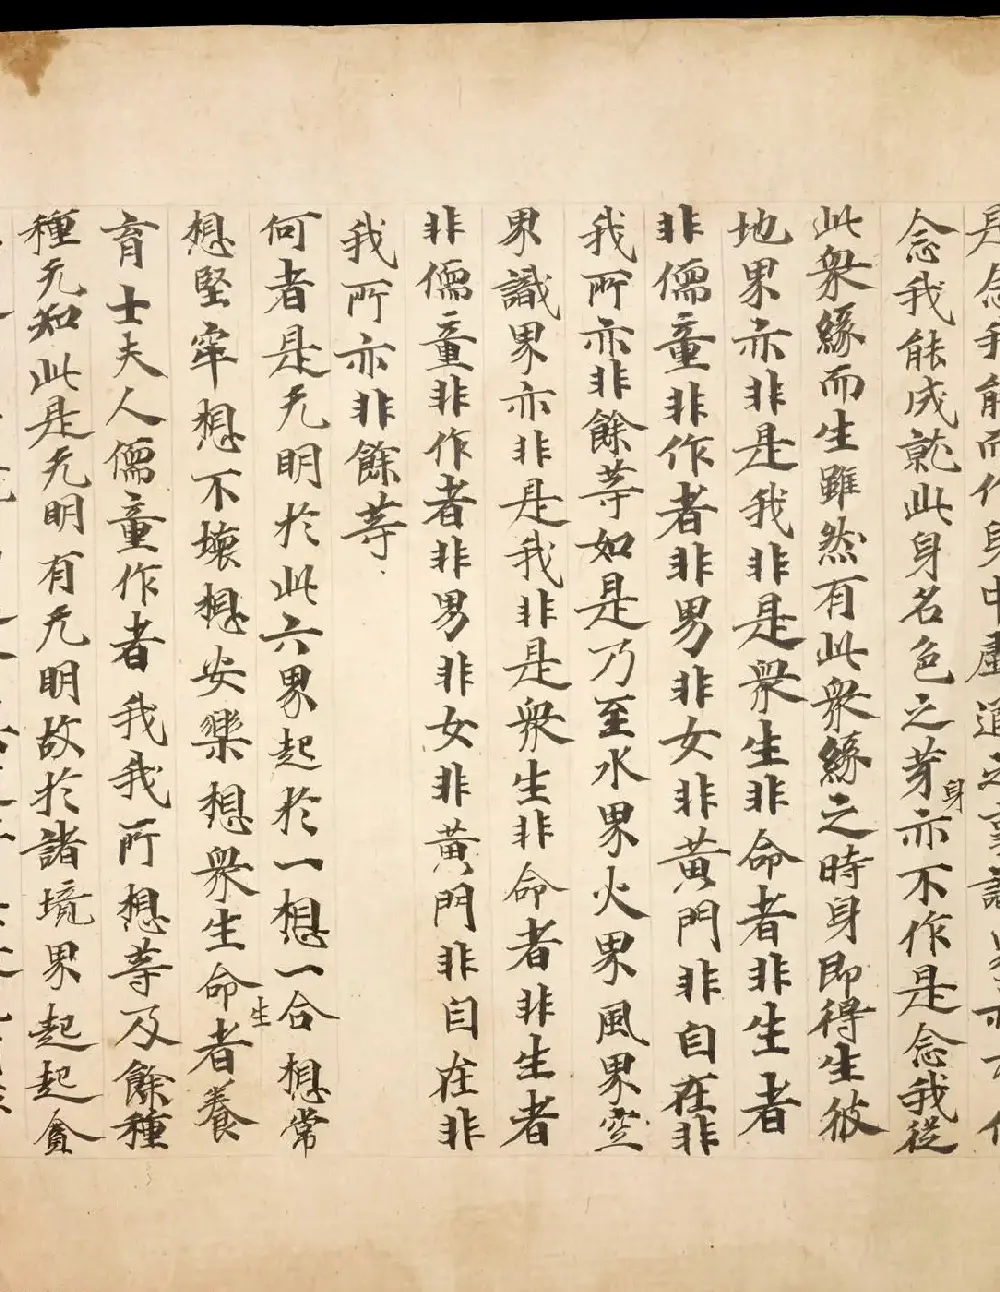 是念我能而作身中虛通之事識界亦不作
念我能成就此身名色之芽身亦不作是念我從
此衆緣而生雖然有此衆緣之時身即得生彼
地界亦非是我非是衆生非命者非生者
非儒童非作者非男非女非黃門非自在非
我所亦非餘等如是乃至水界火界風界空
界識界亦非是我非是衆生非命者非生者
非儒童非作者非男非女非黃門非自在非
我所亦非餘等
何者是无明於此六界起於一想一合想常
想堅牢想不壞想安樂想衆生命者生養
育士夫人儒童作者我我所想等及餘種
種无知此是无明有无明故於諸境界起起貪